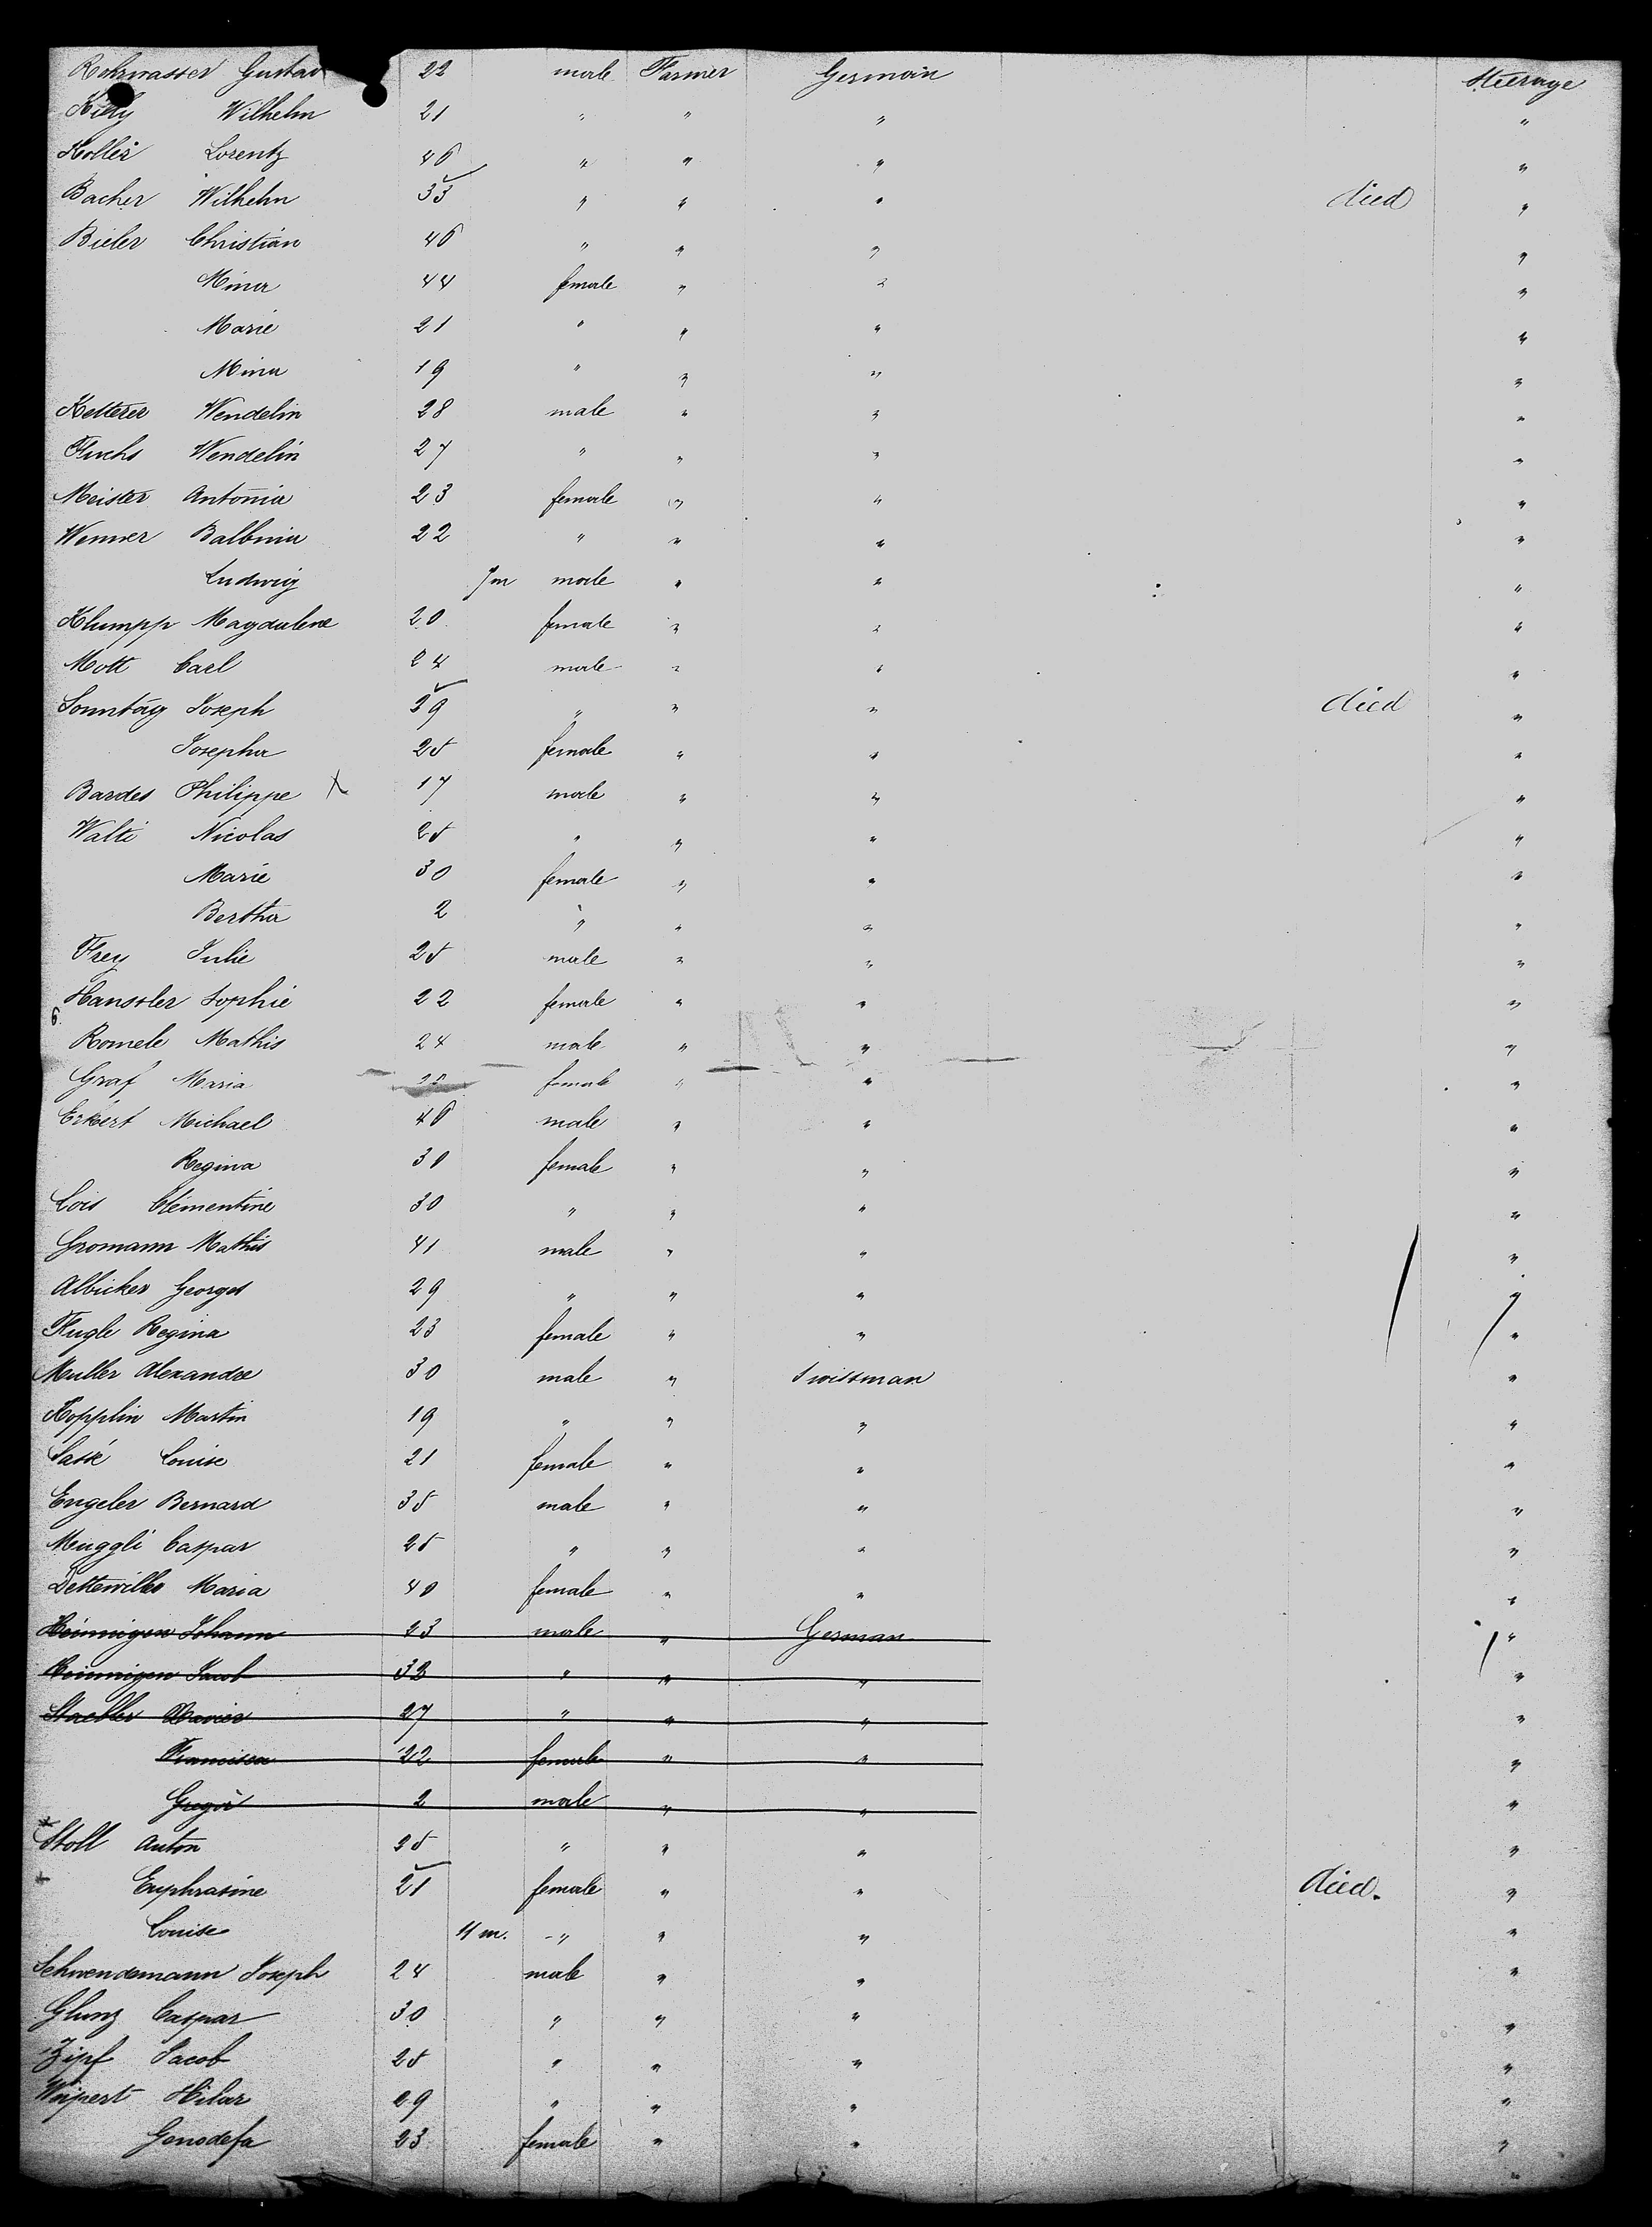 Rohrwasser Gustav 22 male Farmer German Steerage
Kiely Wilhelm 21 " " " "
Holler Lorentz 46 " " " "
Bacher Wilhelm 33 " " " died "
Bieler Christian 46 " " " "
Mina 44 female " " "
Marie 21 " " " "
Mina 19 " " " "
Ketterer Wendelin 28 male " " "
Fuchs Wendelin 27 " " " "
Meister Antonia 23 female " " "
Wenner Balbina 22 " " " "
Ludwig 7m male " " "
Klumpp Magdalene 20 female " " "
Mott Carl 24 male " " "
Sonntag Joseph 39 " " " died "
Josepha 25 female " " "
Bardes Philippe X 17 male " " "
Walti Nicolas 25 " " " "
Marie 30 female " " "
Bertha 2 " " " "
Frey Julie 25 male " " "
Hanssler Sophie 22 female " " "
6. Romele Mathis 24 male " " "
Graf Maria female " " "
Erkert Michael 46 male " " "
Regina 30 female " " "
Cois Clementine 30 " " " "
Gromann Mathis 41 male " " "
Albicker Georges 29 " " " "
Fugle Regina 23 female " " "
Muller Alexandre 30 male " Swissman "
Kopplin Martin 19 " " " "
Sassé Louise 21 female " " "
Engeler Bernard 35 male " " "
Muggli Caspar 25 " " " "
Dettwiller Maria 40 female " " "
Heinnigen Johann 23 male " German "
Heinnigen Jacob 32 " " " "
Staebler Xavier 27 " " " "
Francisca 22 female " " "
Gregor 2 male " " "
Stoll Anton 25 " " " "
+ Euphrasine 21 female " " died. "
Louise 11 m. " " " "
Schwendemann Joseph 24 male " " "
Glunz Caspar 30 " " " "
Zipf Jacob 25 " " " "
Weipert Hilar 29 " " " "
Genodefa 23 female " " "